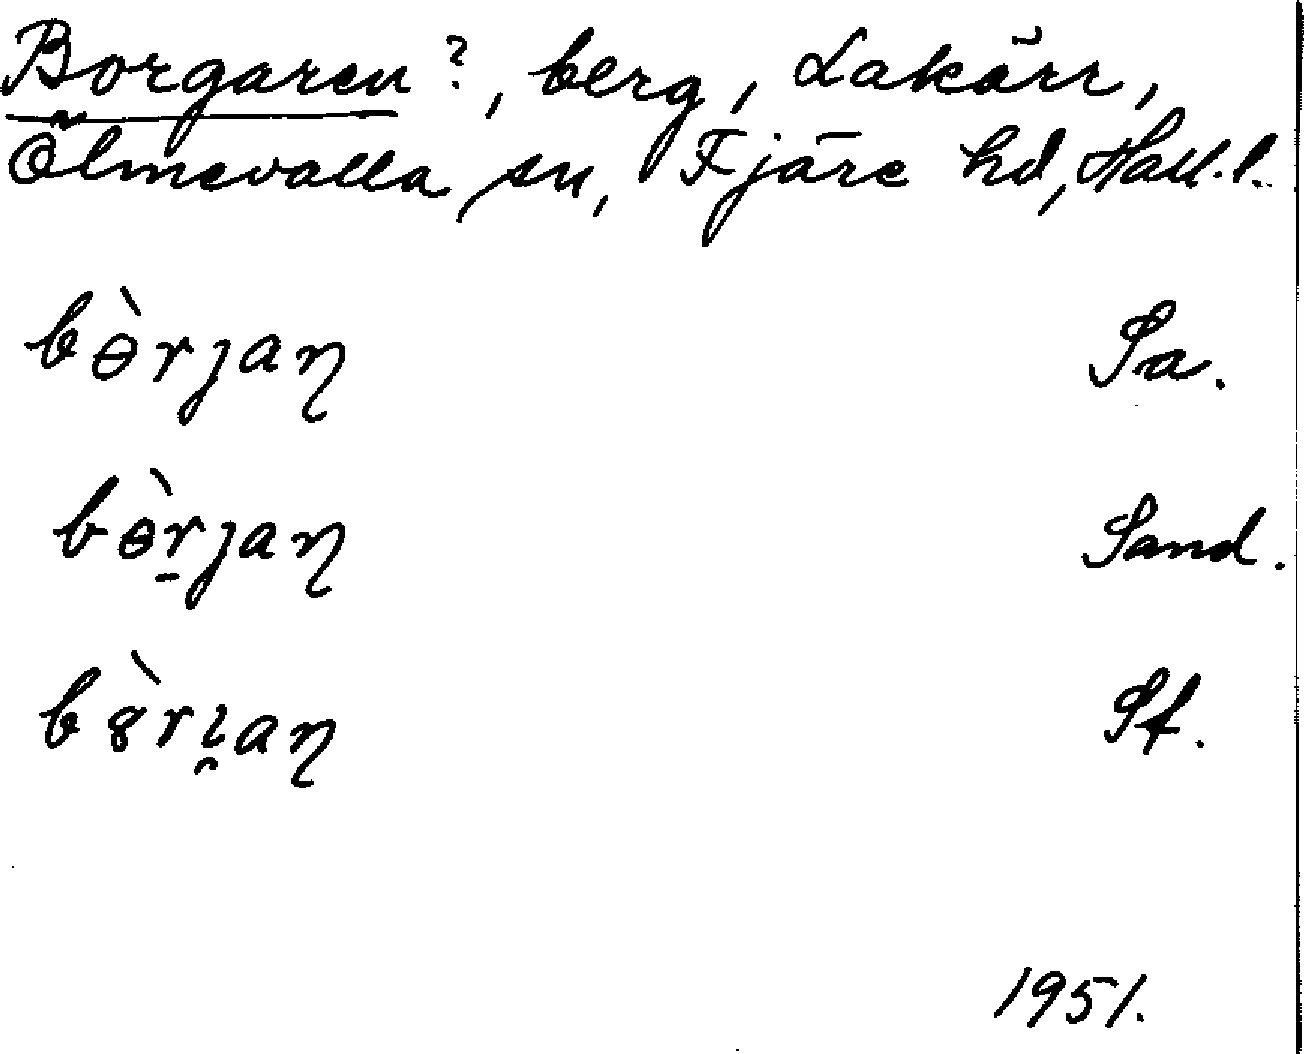 Borgaren?, berg, Lakärr,
Ölmevalla sn, Fjäre hd, Hall.l.
bɵ̀rȷaɳ Sa.
bɵ̀r̠ȷaɳ Sand.
b8̀rı̯aɳ Sf.
1951.